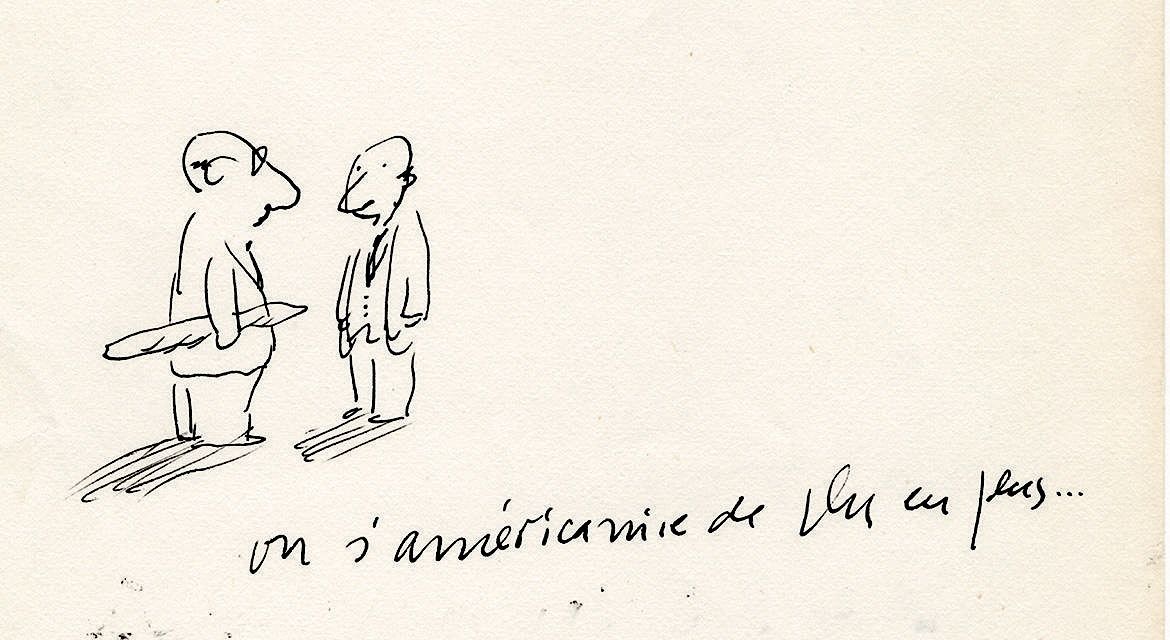 on s'américanise de plus en plus...